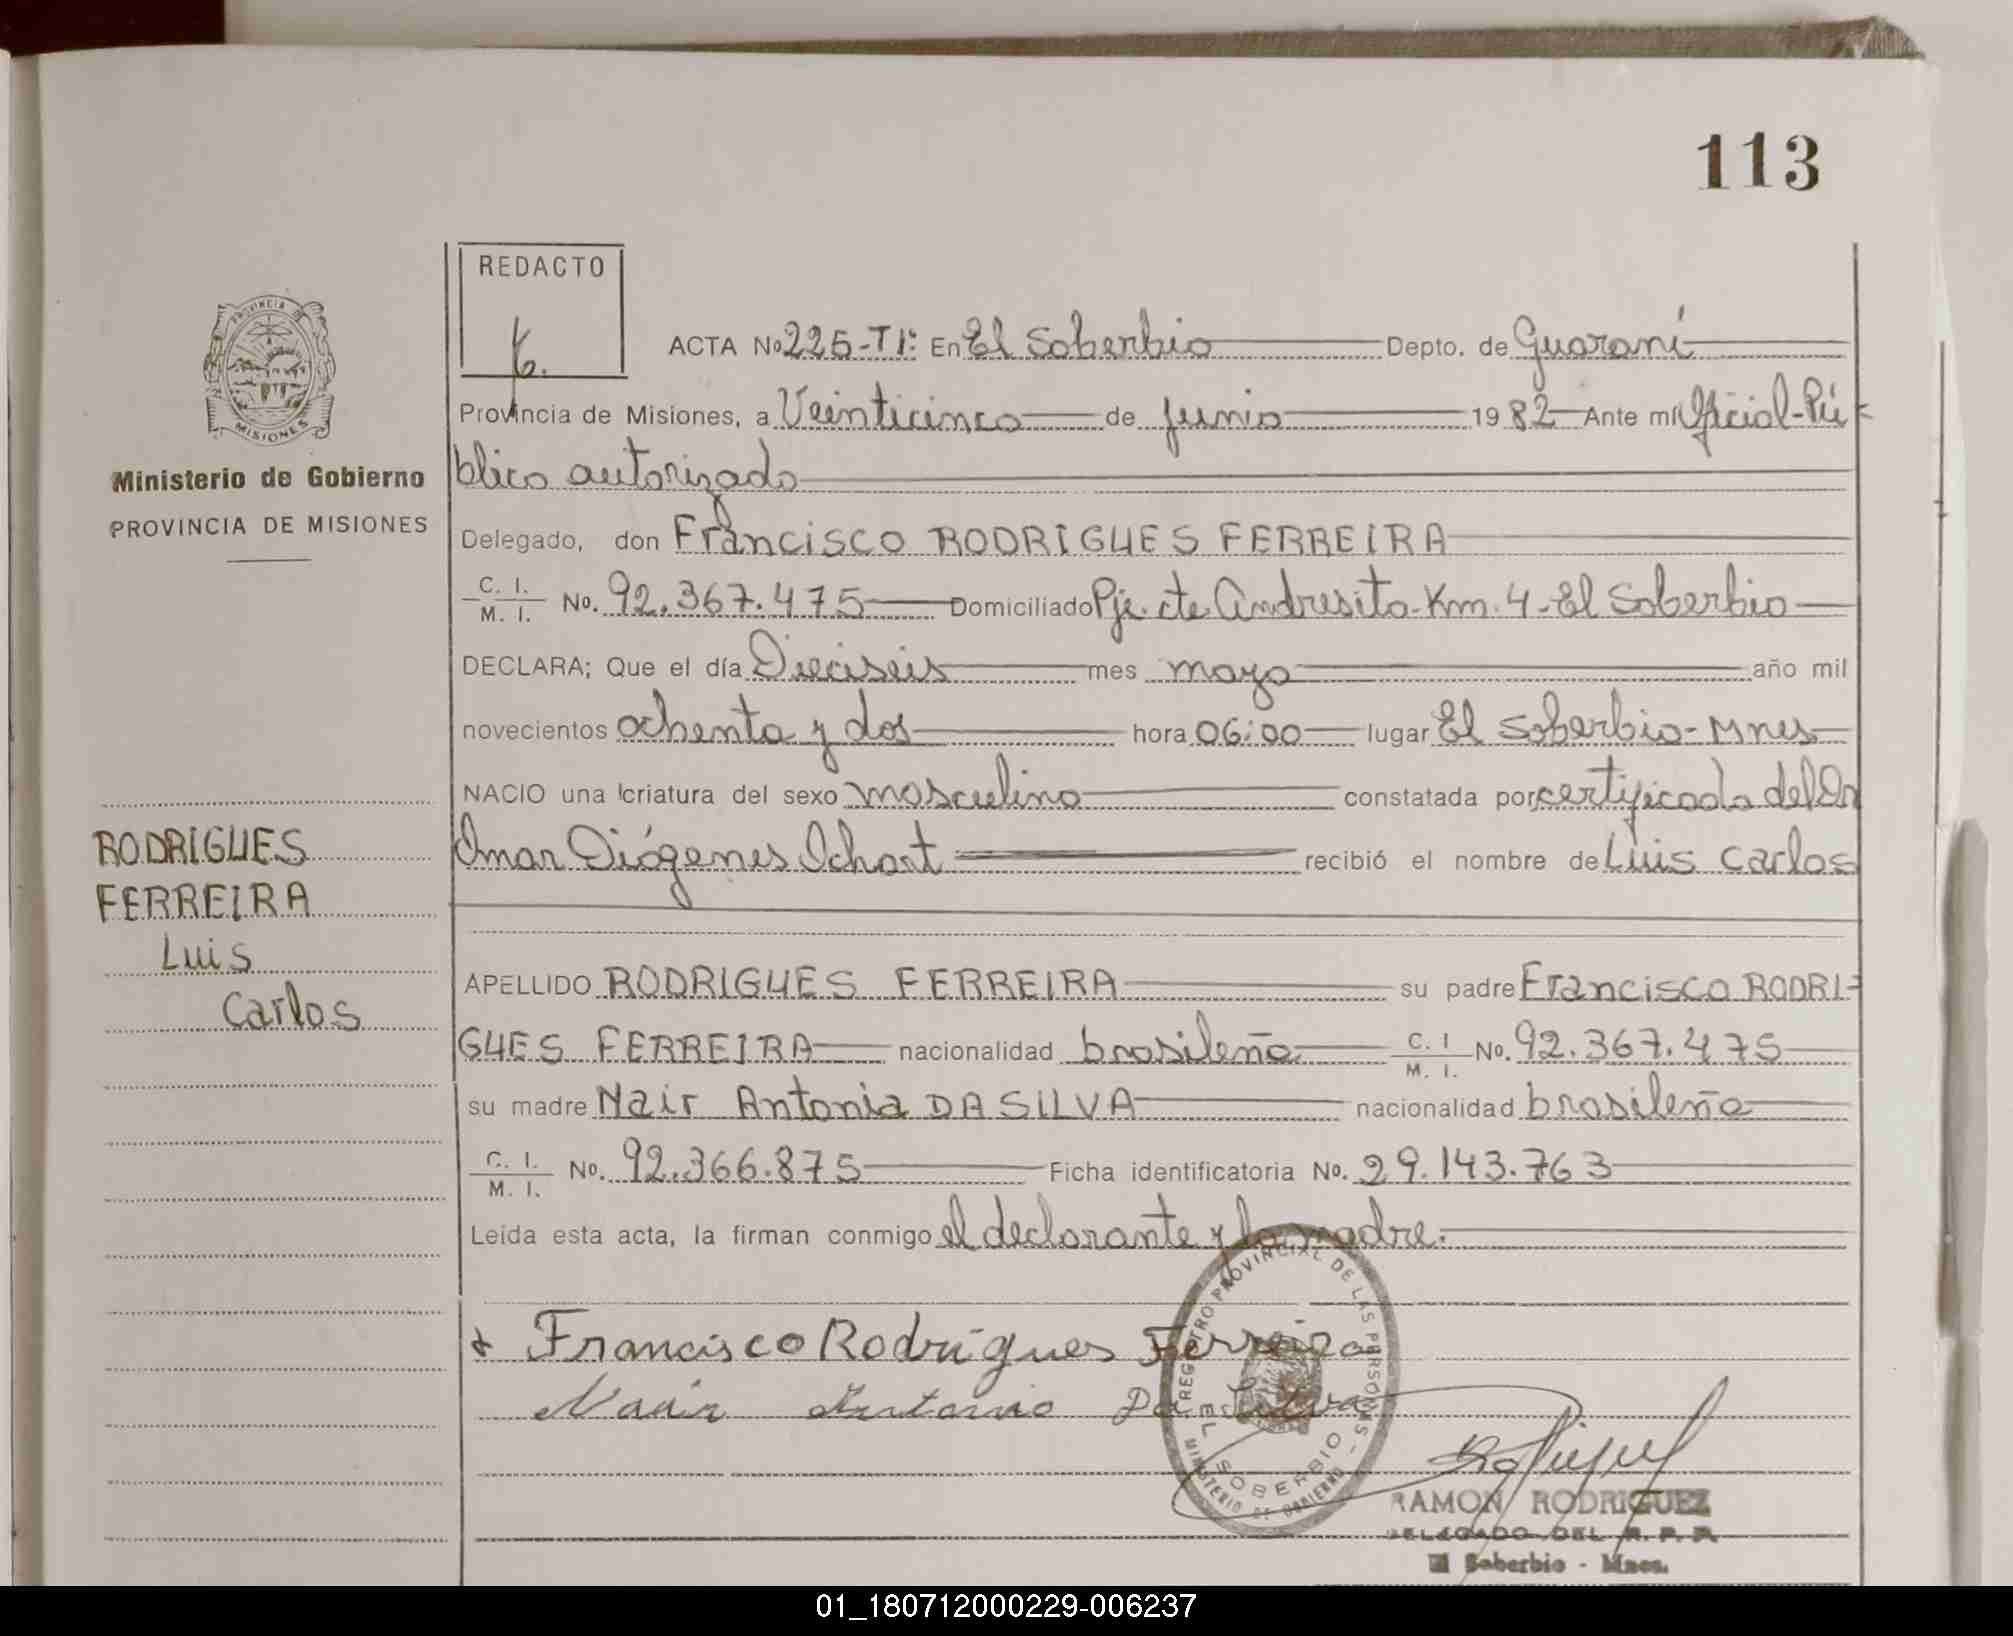 113
REDACTO
ACTA No 225-T1: En El Soberbio Depto. de Guaraní
Provincia de Misiones, a Veinticinco de junio 1982 Ante mí Oficial-Pú
blico autorizado
Delegado, don Francisco RODRIGUES FERREIRA
C. I.
M. I. No. 92.367.475 Domiciliado Pje. cte Andresito-Km. 4-El Soberbio
DECLARA; Que el día Dieciseis mes mayo año mil
novecientos ochenta y dos hora 06:00 lugar El Soberbio-Mnes
NACIO una criatura del sexo masculino constatada por certificado del Dr
Omar Diógenes Ichart recibió el nombre de Luis Carlos
APELLIDO RODRIGUES FERREIRA su padre Francisco RODRI-
GUES FERREIRA nacionalidad brasileña C. I
M. I. No. 92.367.475
su madre Nair Antonia DA SILVA nacionalidad brasileña
C. I.
M. I. No. 92.366.875 Ficha identificatoria No. 29.143.763
Leída esta acta, la firman conmigo el declarante y la madre.
Francisco Rodrigues Ferreira
Nair Antonia Da Silva
REGISTRO PROVINCIAL DE LAS PERSONAS
EL SOBERBIO
MINISTERIO DE GOBIERNO
RAMON RODRIGUEZ
DELEGADO DEL R. P. P.
El Soberbio - Mnes.
PROVINCIA DE
MISIONES
Ministerio de Gobierno
PROVINCIA DE MISIONES
RODRIGUES
FERREIRA
Luis
Carlos
01_180712000229-006237